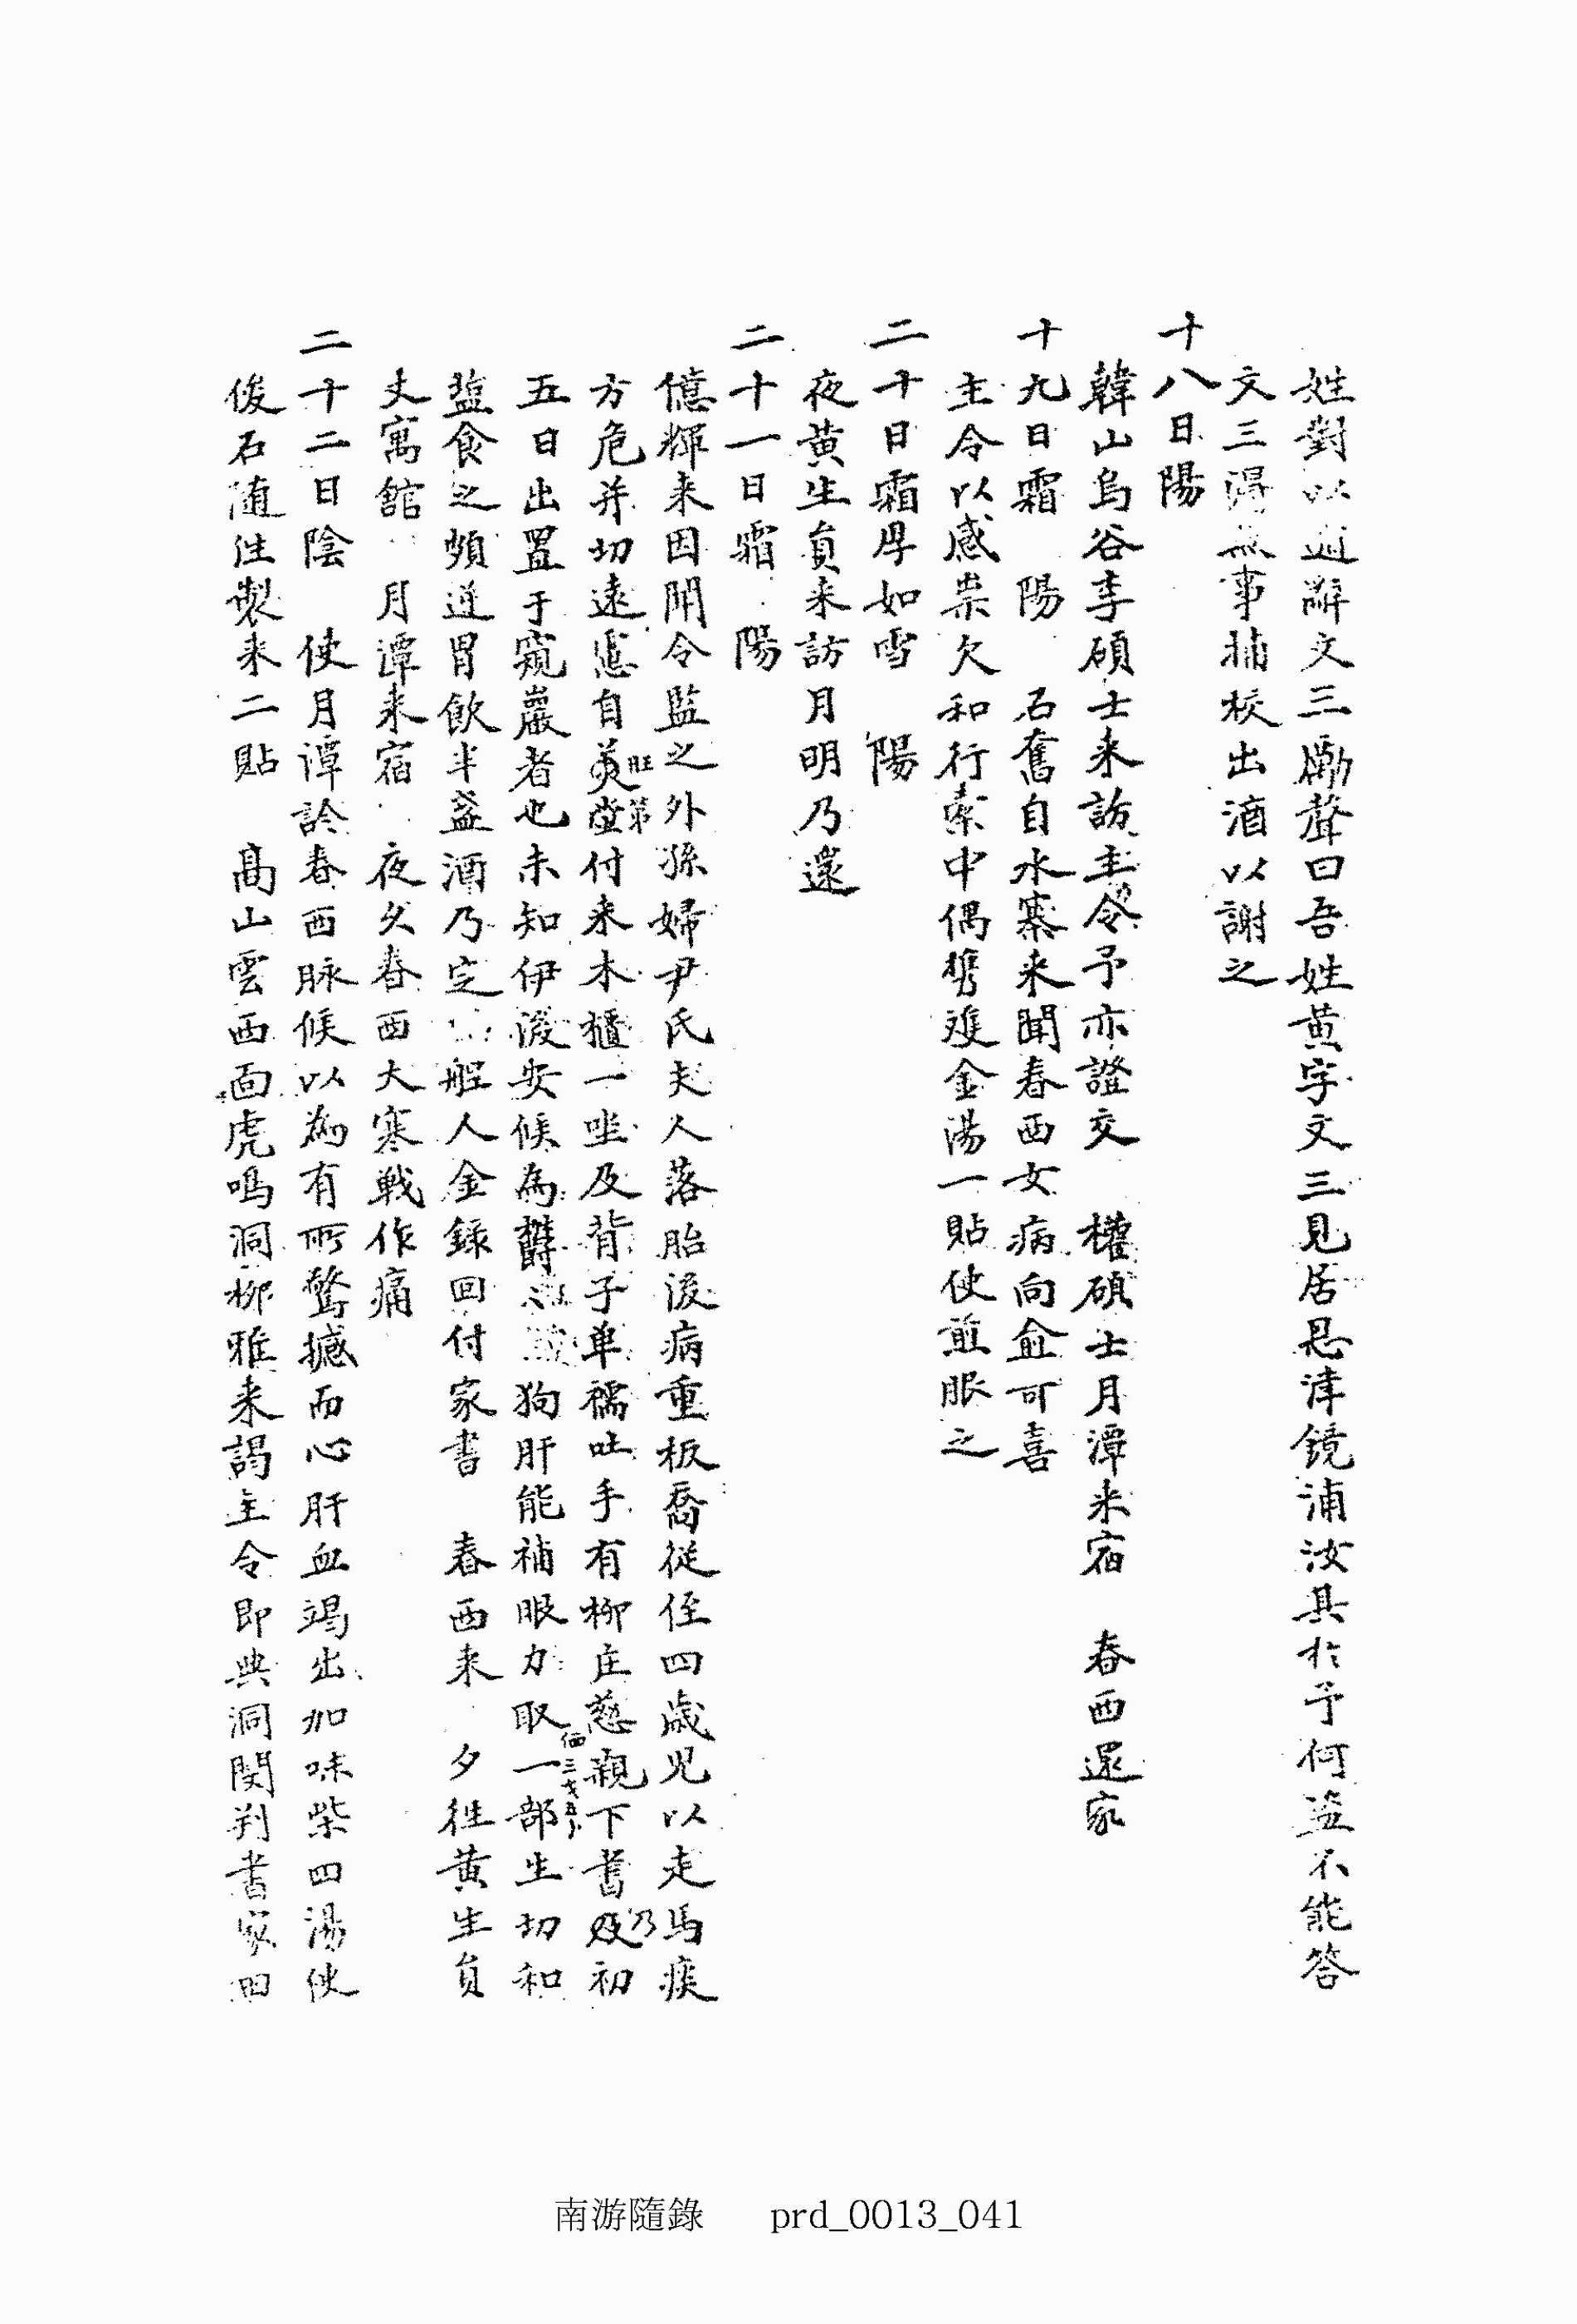 姓對以逊辭文三勵聲曰吾姓黃字文三見居恩津鏡浦汝其於予何盜不能答
文三得無事捕校出酒以謝之
十八日陽
韓山烏谷李碩士来訪主令予亦證交 權碩士月潭来宿 春西還家
十九日霜 陽 石奮自水寨来聞春西女病向兪可喜
主令以感祟欠和行橐中偶携進金湯一貼使煎服之
二十日霜厚如雪 陽
夜黃生員来訪月明乃還
二十一日霜 陽
僖輝来因聞令監之外孫婦尹氏夫人落胎後病重板喬從侄四歲児以走馬疾
方危并切遠慮自美堂旺第付来木櫃一坐及背子单襦吐手有柳庄慈親下書乃初
五日出置于窺巖者也未知伊後安候為欝 狗肝能補眼力取一部価三戔五分生切和
盐食之頗逆胃飲半盞酒乃定 船人金錄回付家書 春西来 夕往黃生員
丈寓舘 月潭来宿 夜久春西大寒戰作痛
二十二日陰 使月潭診春西脉候以為有所驚撼而心肝血竭出加味柴四湯使
俊石随往製来二貼 高山雲西面虎鳴洞柳雅来謁主令即典洞閔判書家田